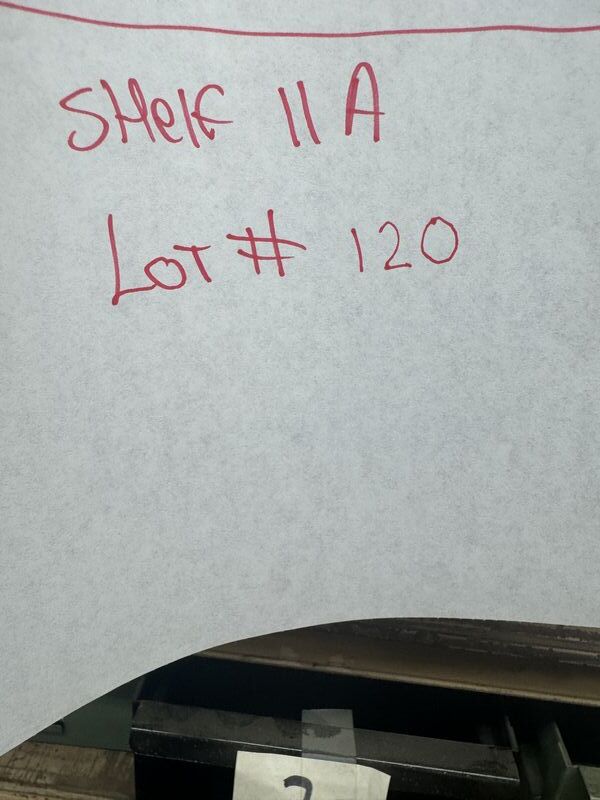 SHelF 11 A
LoT # 120